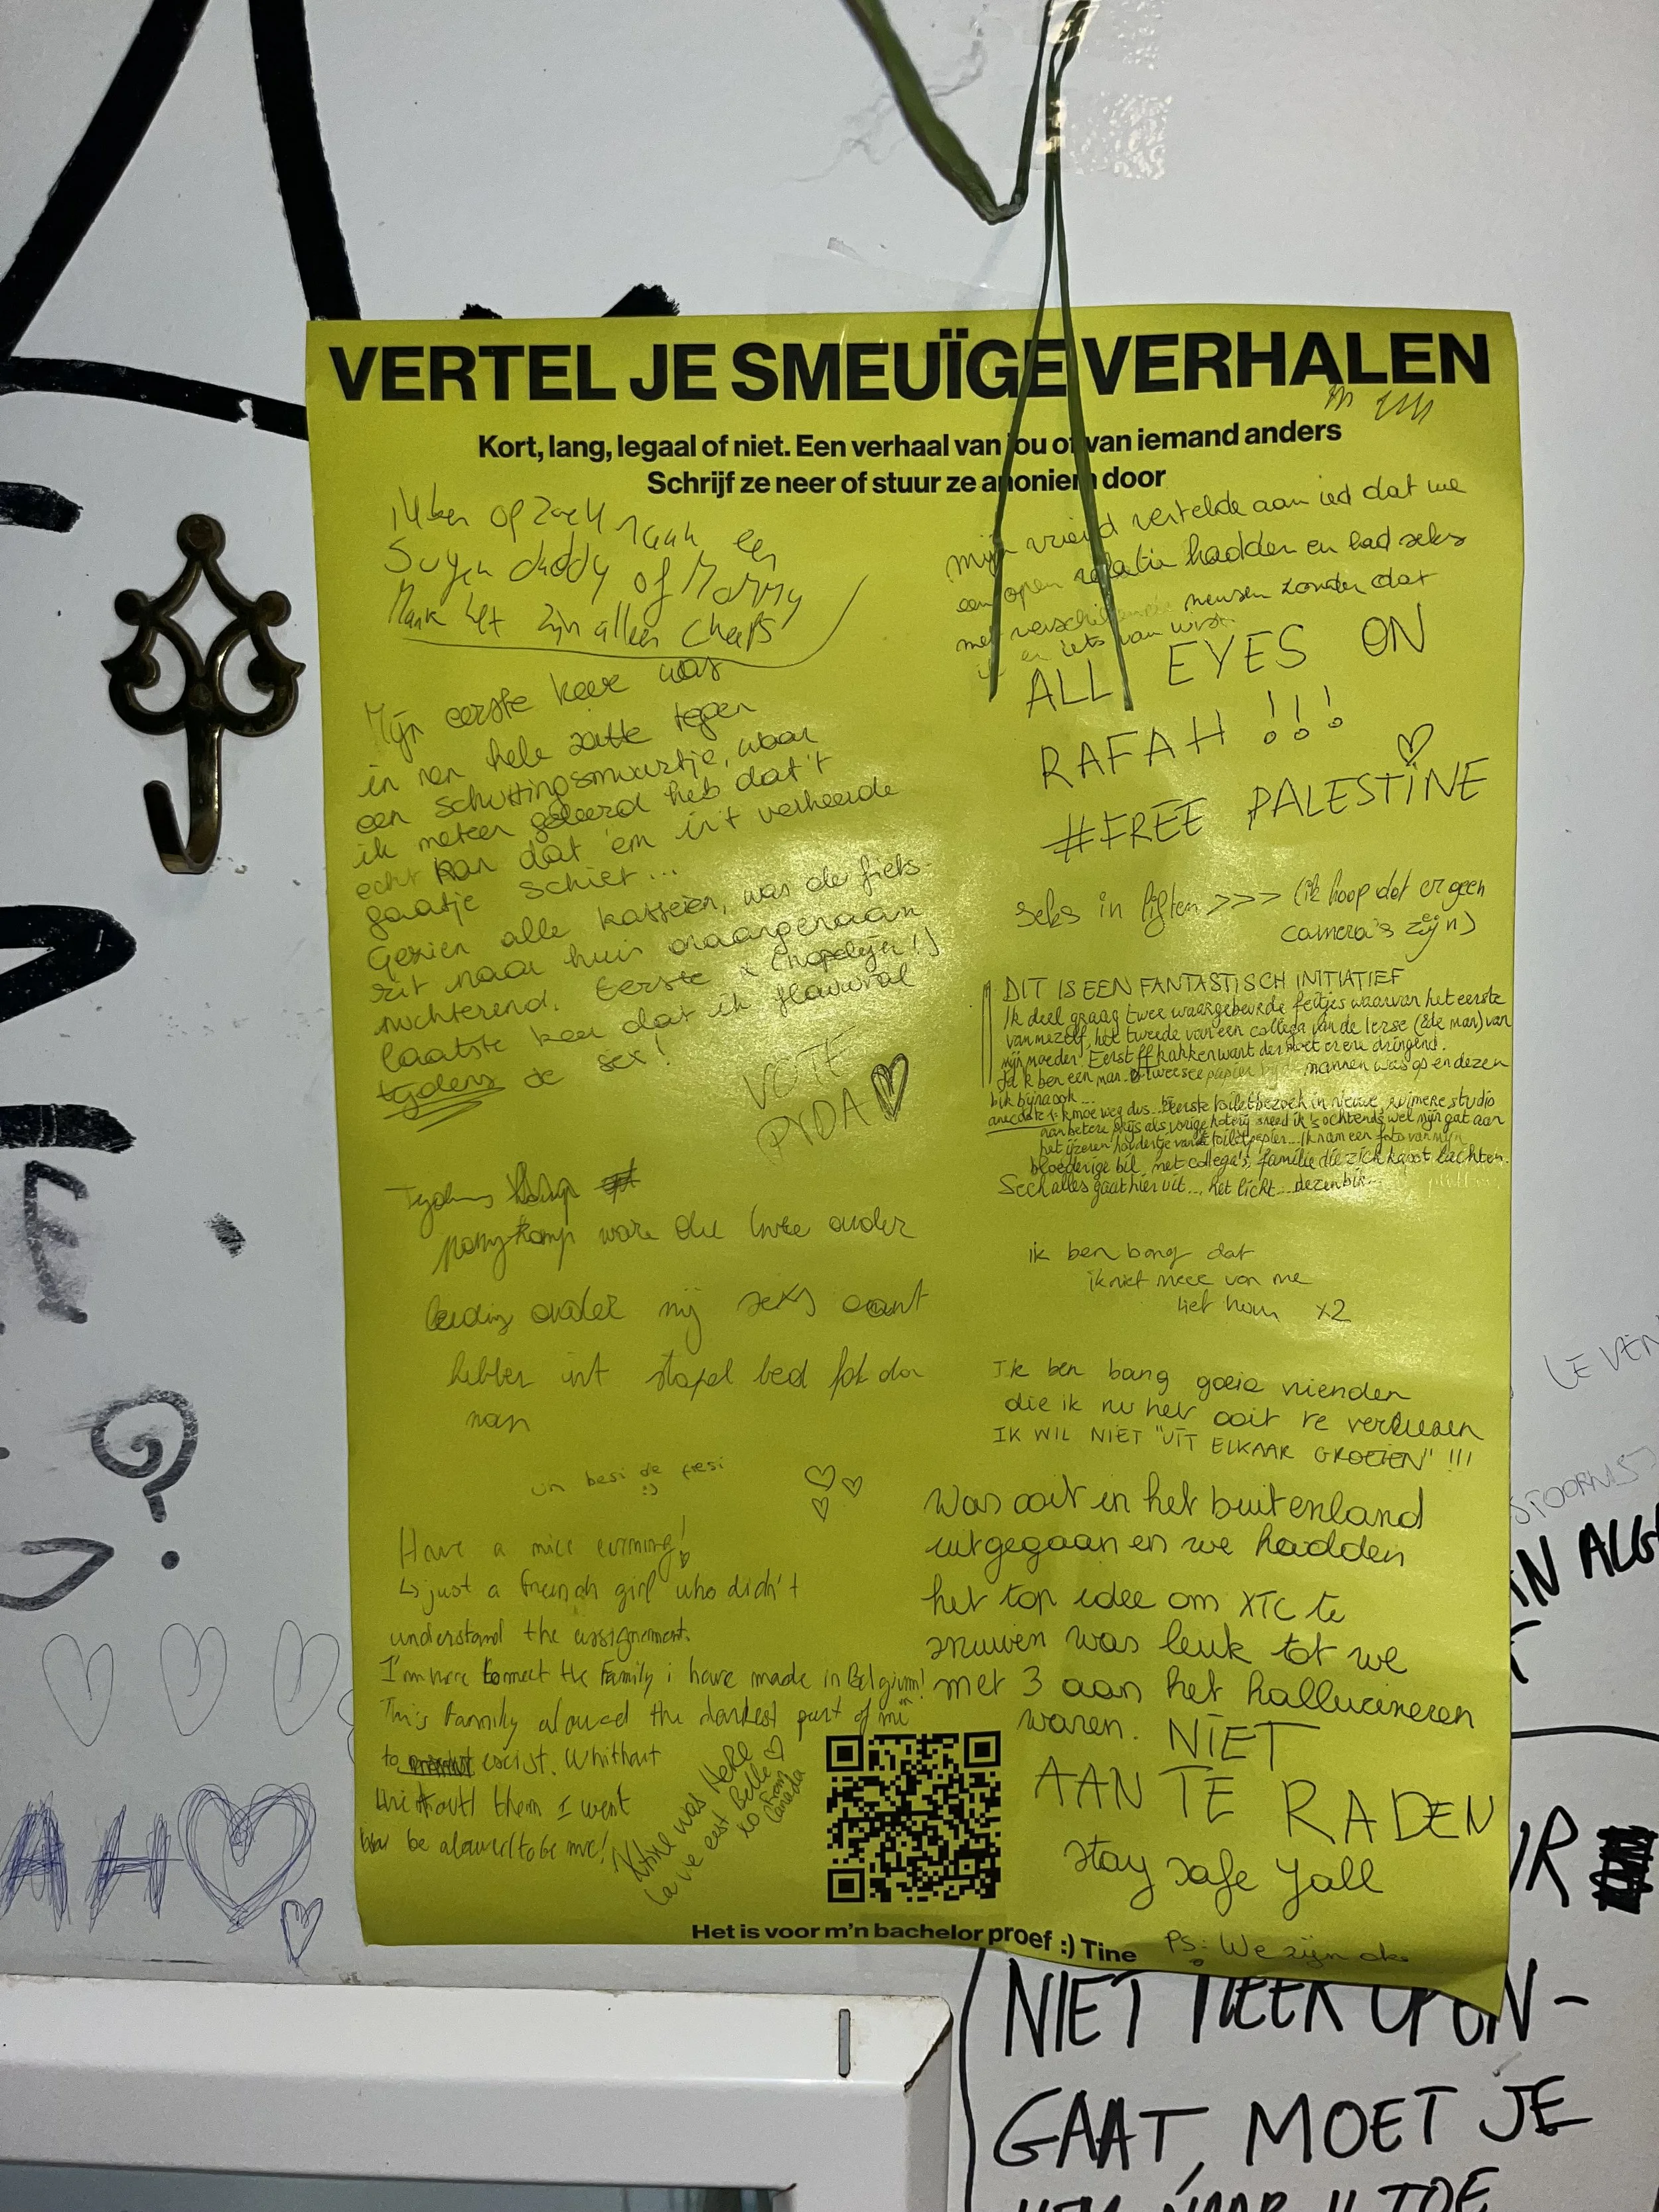 VERTEL JE SMEUÏGE VERHALEN
Kort, lang, legaal of niet. Een verhaal van jou of van iemand anders
Schrijf ze neer of stuur ze anoniem door
ik ben op zoek naar een
daddy of Mommy
zijn alleen
Mijn eerste keer was
in nen hele zatte tegen
een schuttingsmuurtje, waar
ik meteen geleerd heb dat 't
echt kan dat 'em in 't verkeerde
gaatje schiet...
Gezien alle kasseien, was de fiets-
rit naar huis
nuchterend. Eerste & (hopelijk!)
laatste keer dat ik
tijdens de sex!
VOTE
PVDA
Tijdens
ponykamp ware die twee onder
leiding onder mij seks aant
hebben int stapel bed
un besi de fresi
Have a nice evening!
↳ just a french girl who didn't
understand the assignement.
I'm here to meet the Family i have made in Belgium!
This Family alowed the darkest part of mi
to exist. Whithout
them I went
be alowed to be me!
was HERE
La vie est Belle
xo from
Canada
mijn vriend vertelde aan ied dat we
een open relatie hadden en had seks
met verschillende mensen zonder dat
ik er iets van wist
ALL EYES ON
RAFAH !!!
#FREE PALESTINE
seks in liften >>> (ik hoop dat er geen
camera's zijn)
DIT IS EEN FANTASTISCH INITIATIEF
Ik deel graag twee waargebeurde feitjes waarvan het eerste
van mezelf, het tweede van een collega van de Ierse (2de man) van
mijn moeder. Eerst ff kakken want der moet er ene dringend.
Ja ik ben een man. mannen was op en dezen
bik bijna ook...
anecdote 1: kmoe weg dus... Eerste toiletbezoek in nieuwe, ruimere studio
aan betere prijs als vorige koterij sneed ik 's ochtends wel mijn gat aan
het ijzeren houdertje van 't toiletpapier... Ik nam een foto van mijn
bloederige bil, met collega's, familie die zich kapot lachten.
Sech alles gaat hier uit... het licht... dezen bik...
ik ben bang dat
ik niet meer van me
lief hou x2
Ik ben bang goeie vrienden
die ik nu heb ooit te verliezen
IK WIL NIET "UIT ELKAAR GROEIEN" !!!
Was ooit in het buitenland
uitgegaan en we hadden
het top idee om XTC te
snuiven was leuk tot we
met 3 aan het hallucineren
waren. NIET
AAN TE RADEN
stay safe yall
PS: We zijn oke
Het is voor m'n bachelor proef :) Tine
LEVEN
STOORNIS
IN ALG
AH
NIET MEER OPEN-
GAAT, MOET JE